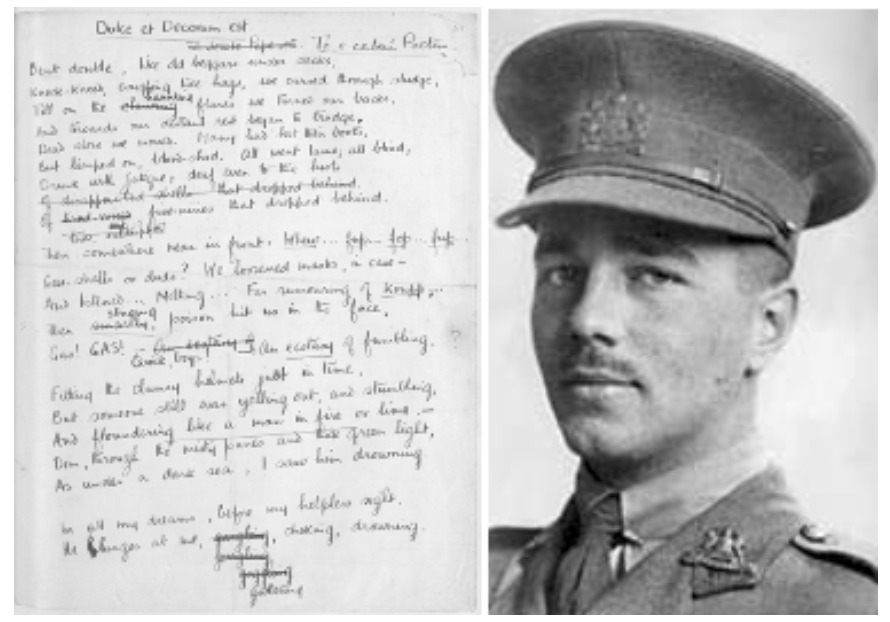 Dulce et Decorum est
To a certain Poetess.
Bent double, like old beggars under sacks,
Knock-kneed, coughing like hags, we cursed through sludge,
Till on the clawing haunting flares we turned our backs,
And towards our distant rest began to trudge,
Dead slow we moved. Many had lost their boots,
But limped on, blood-shod. All went lame; all blind;
Drunk with fatigue; deaf even to the hoots
Of disappointed shells that dropped behind.
Of five-nines that dropped behind.
Then somewhere near in front: Whew... fup... fop... fup...
Gas-shells or duds? We loosened masks, in case –
And listened... Nothing... Far rumouring of Krupp...
stinging
Then poison hit us in the face,
Gas! GAS! – An ecstasy of An ecstasy of fumbling, ?
Quick, boys!
Fitting the clumsy helmets just in time,
But someone still was yelling out, and stumbling,
And floundering like a man in fire or lime. –
Dim, through the misty panes and thick green light,
As under a dark sea, I saw him drowning
In all my dreams, before my helpless sight.
He lunges at me, gargling, choking, drowning.
gurgling
guttering